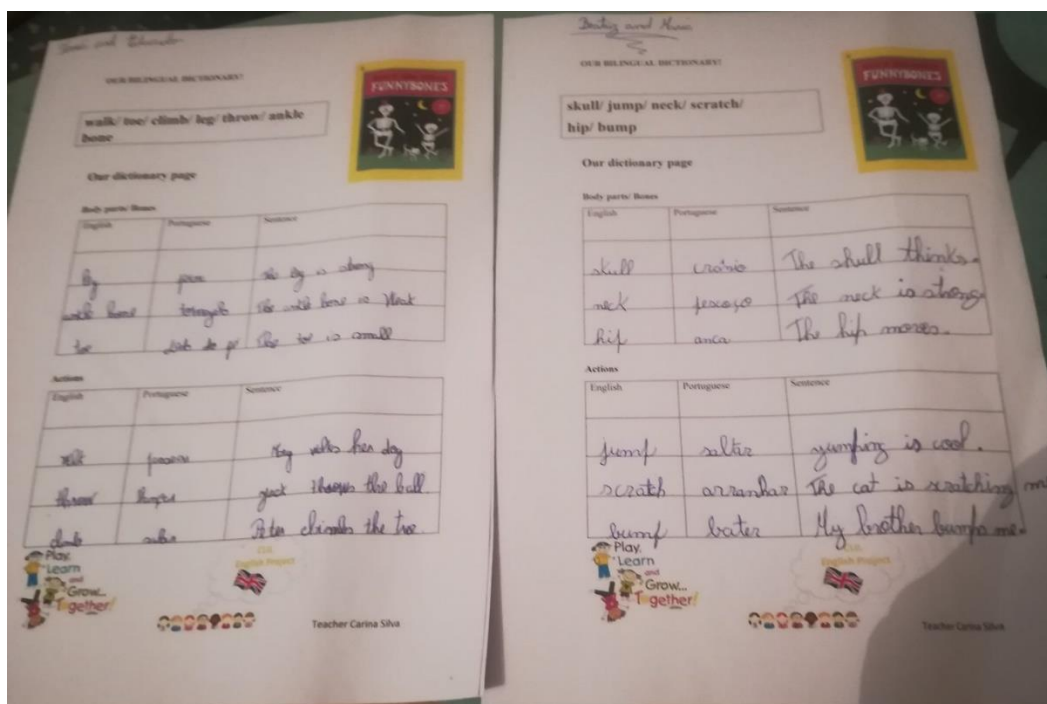 and
OUR BILINGUAL DICTIONARY!
FUNNYBONES
walk/ toe/ climb/ leg/ throw/ ankle
bone
Our dictionary page
Body parts/ Bones
English Portuguese Sentence
leg The leg is strong
ankle bone tornozelo The ankle bone is
toe The toe is small
Actions
English Portuguese Sentence
walk passear walks her dog
throw the ball
climb Peter the tree.
Play,
Learn
and
Grow...
Together!
CLIL
English Project
Teacher Carina Silva
and
OUR BILINGUAL DICTIONARY!
FUNNYBONES
skull/ jump/ neck/ scratch/
hip/ bump
Our dictionary page
Body parts/ Bones
English Portuguese Sentence
skull The skull thinks.
neck pescoço The neck is strong
hip anca The hip moves.
Actions
English Portuguese Sentence
jump saltar jumping is cool.
scratch arranhar The cat is scratching
bump bater My brother bumps me.
Play,
Learn
and
Grow...
Together!
CLIL
English Project
Teacher Carina Silva